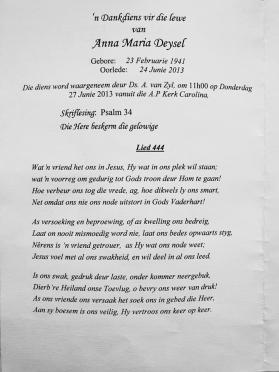 'n Dankdiens vir die lewe
van
Anna Maria Deysel
Gebore: 23 Februarie 1941
Oorlede: 24 Junie 2013
Die diens word waargeneem deur Ds. A. van Zyl, om 11h00 op Donderdag
27 Junie 2013 vanuit die A.P Kerk Carolina,
Skriflesing: Psalm 34
Die Here beskerm die gelowige
Lied 444
Wat 'n vriend het ons in Jesus, Hy wat in ons plek wil staan;
wat 'n voorreg om gedurig tot Gods troon deur Hom te gaan!
Hoe verbeur ons tog die vrede, ag, hoe dikwels ly ons smart,
Net omdat ons nie ons node uitstort in Gods Vaderhart!
As versoeking en beproewing, of as kwelling ons bedreig,
Laat on nooit mismoedig word nie, laat ons bedes opwaarts styg,
Nêrens is 'n vriend getrouer, as Hy wat ons node weet;
Jesus voel met al ons swakheid, en wil deel in al ons leed.
Is ons swak, gedruk deur laste, onder kommer neergebuk,
Dierb're Heiland onse Toevlug, o bevry ons weer van druk!
As ons vriende ons versaak het soek ons in gebed die Heer,
Aan sy boesem is ons veilig, Hy vertroos ons keer op keer.